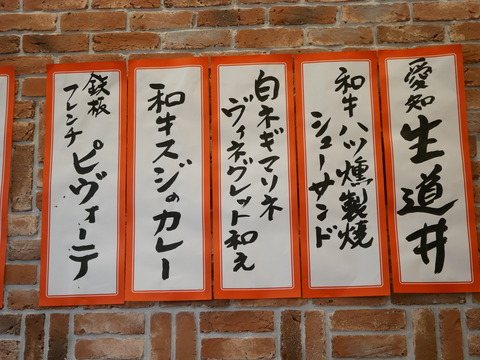 愛知
生道井
和牛ハツ燻製焼
シューサンド
白ネギマリネ
ヴィネグレット和え
和牛スジのカレー
鉄板
フレンチ
ピヴォーテ